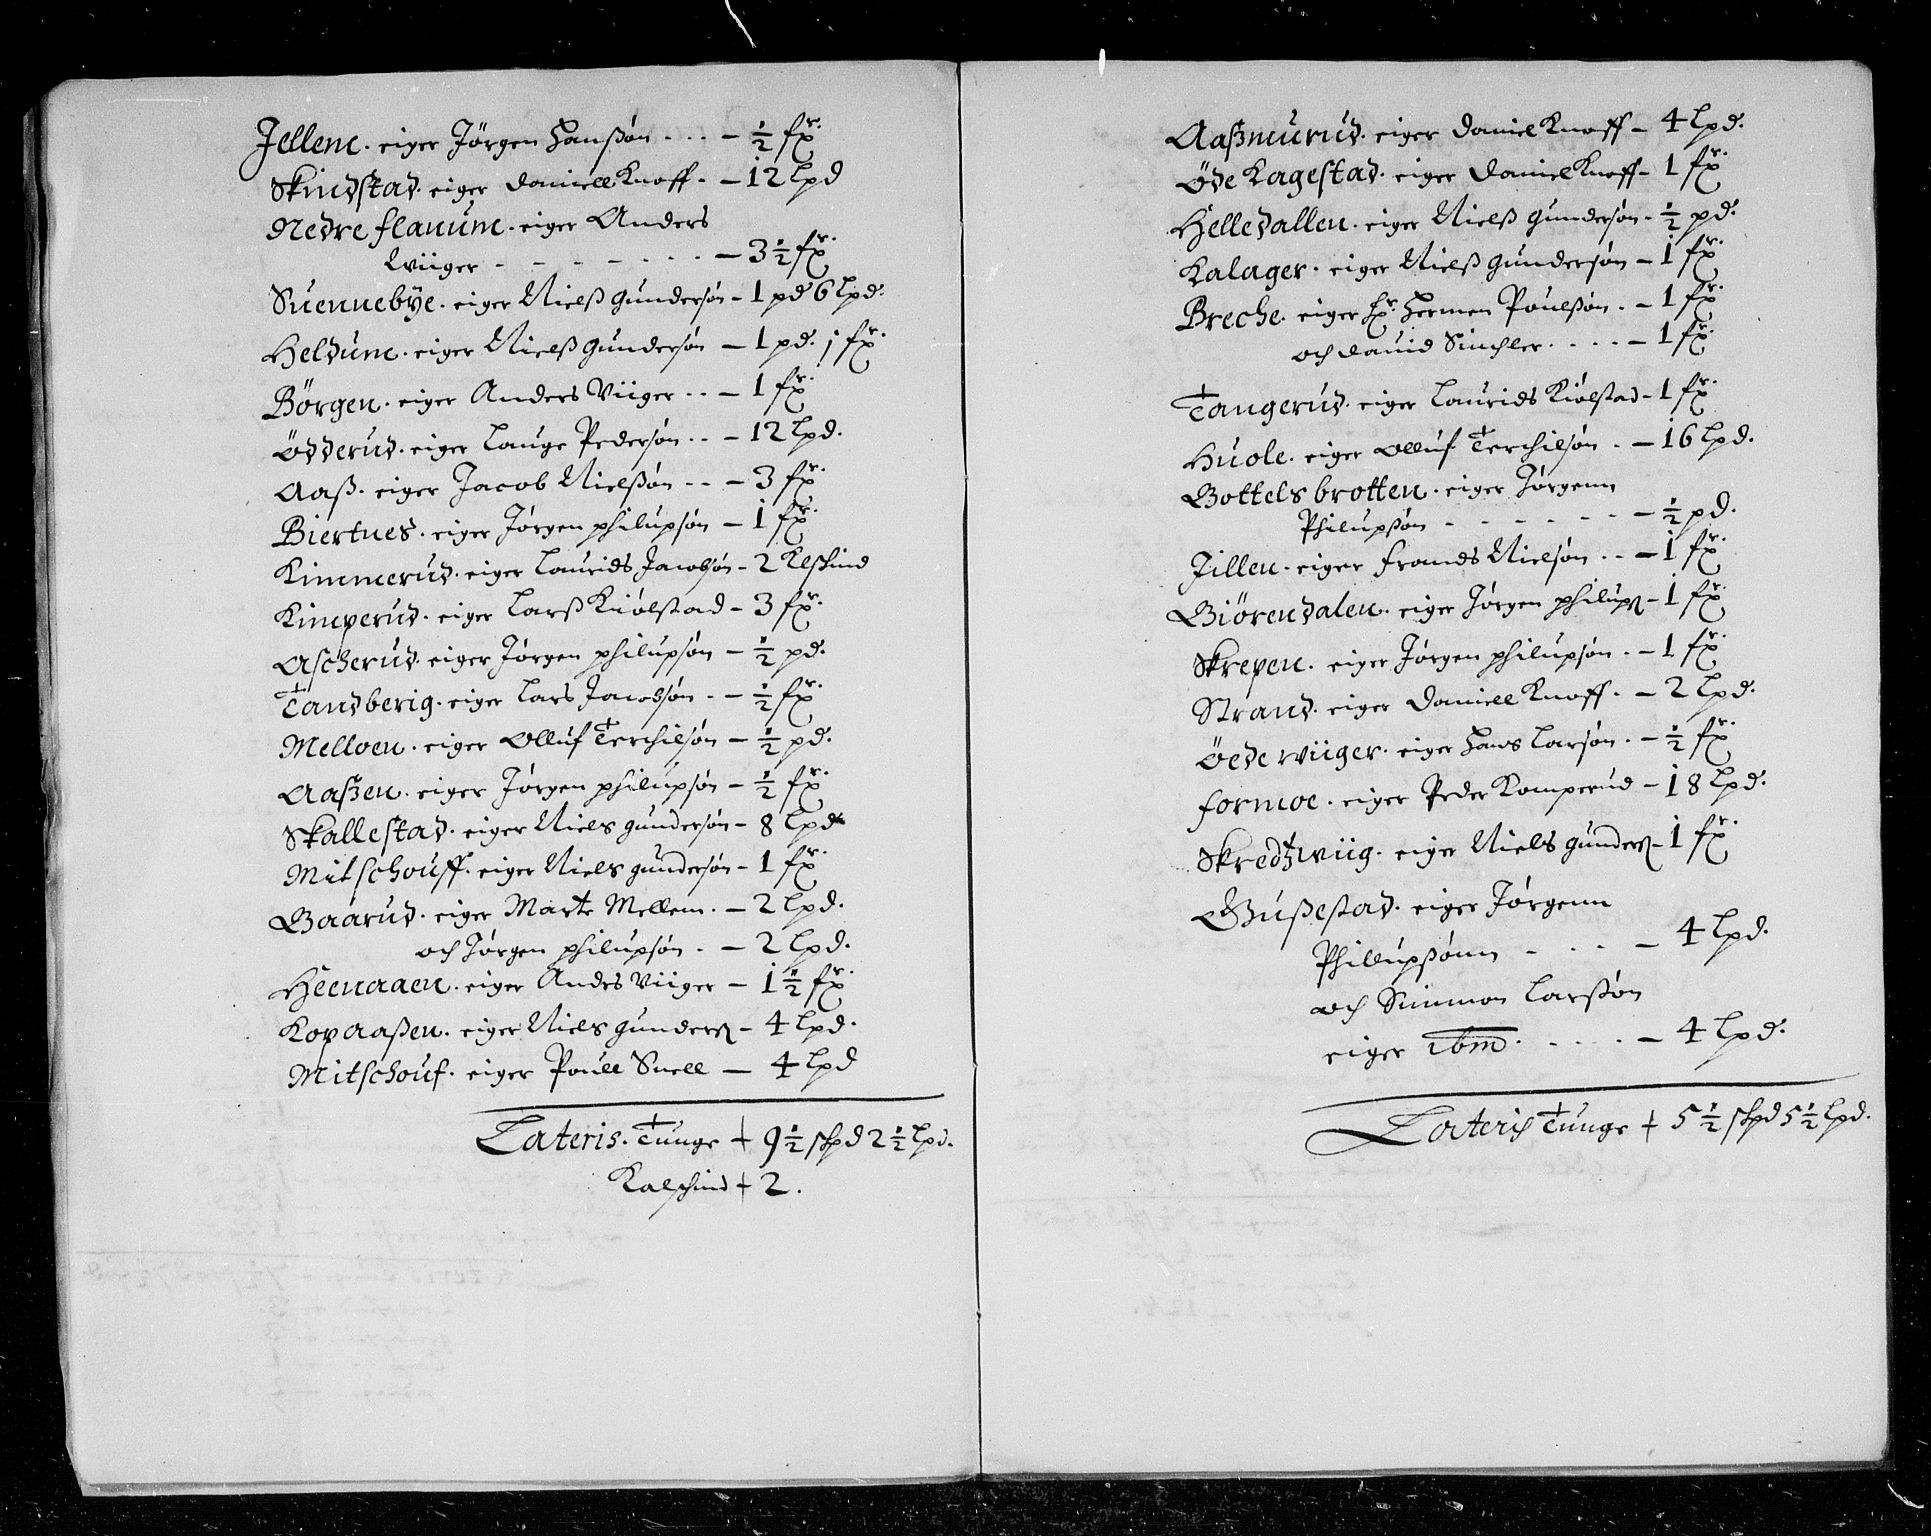 Jellem. eiger Jörgen Hanßøn . . . – ½ fr.
Skindstad. eiger Daniell Knoff. – 12 lpd
Nedre flauum. eiger Anders
Wiiger - - - - - - – 3½ fr.
Suennebÿe. eiger Nielß gundersøn – 1 pd 6 lpd.
Heldum. eiger Nielß gundersøn – 1 pd. j fr.
Börgen. eiger Anders Viiger . . – 1 fr.
Ödderud. eiger Lauge Pedersøn . . – 12 lpd.
Aaß. eiger Jacob Nielßøn . . – 3 fr.
Biertnes. eiger Jørgen philupsøn – 1 fr.
Kimmerud. eiger Laurids Jacobsøn – 2 Klskind
Kimperud. eiger Larß Kiølstad – 3 fr.
Ascherud. eiger Jørgen philupsøn – ½ pd.
Tandberig. eiger Lars Jacobsøn . – ½ fr.
Melloen. eiger Olluf Terchilsøn – ½ pd.
Aaßen. eiger Jørgen philupsøn – ½ fr.
Skallestad. eiger Niels gundersøn – 8 lpd
Mitschouff. eiger Niels gundersøn – 1 fr.
Gaarud. eiger Marte Mellem. – 2 lpd.
och Jørgen philupsøn . – 2 lpd.
Heenaaen. eiger Andrs Viiger – 1½ fr.
Kopaaßen. eiger Niels gunders – 4 lpd.
Mitschouf. eiger Poull Snell – 4 lpd
Lateris. Tunge + 9½ skpd 2½ lpd.
Kalschind + 2.
Aaßmurud. eiger Daniel Knoff – 4 lpd.
Öde Kagestad. eiger Daniel Knoff – 1 fr.
Helledallen. eiger Nielß gundersøn – ½ pd.
Kalager. eiger Nielß gundersøn – 1 fr.
Breche. eiger Hr. Hermen Poulßøn . – 1 fr.
och Dauid Sinchler . . . . – 1 fr.
Tangerud. eiger Laurids Kiølstad – 1 fr.
Huole. eiger Olluf Terchilsøn . – 16 lpd.
Gottelsbrotten. eiger Jørgenn
Philupßøn - - - - - – ½ pd.
Jillen. eiger frands Nielsøn . . – 1 fr.
Giörendalen. eiger Jørgen philups – 1 fr.
Skrepen. eiger Jørgen philupsøn . – 1 fr.
Strand. eiger Daniell Knoff . – 2 lpd.
Öede wiiger. eiger Hans Larsøn . – ½ fr.
formoe. eiger Peder Komperud – 18 lpd.
Skredtzwiig. eiger Niels gunders – 1 fr.
Gußestad. eiger Jørgenn
Phillupßønn - . . – 4 lpd.
och Simmon Larßøn
eiger ibm . . . . . – 4 lpd.
Lateris Tunge + 5½ skpd 5½ lpd.